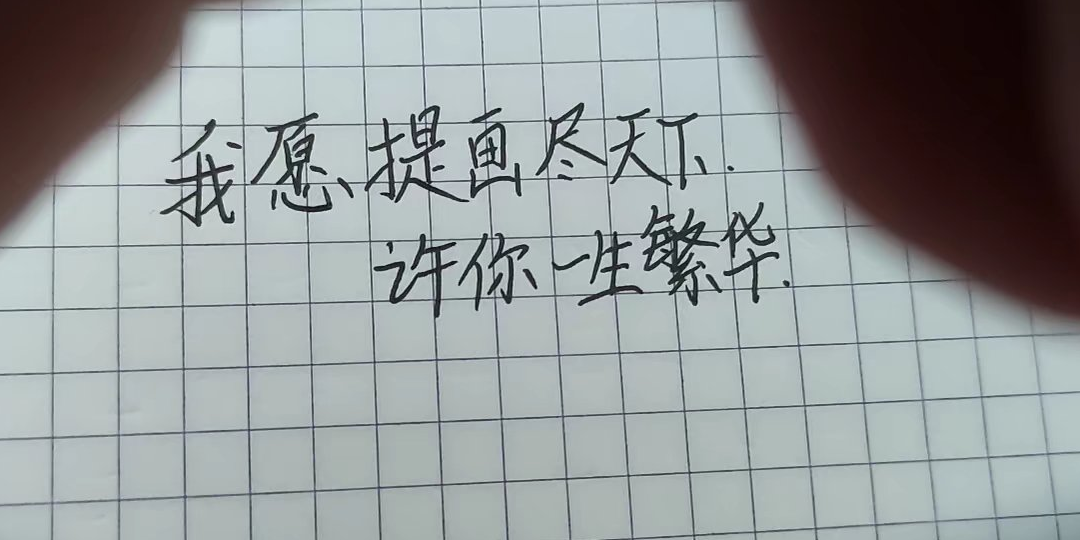 我愿提画尽天下.
许你一生繁华.